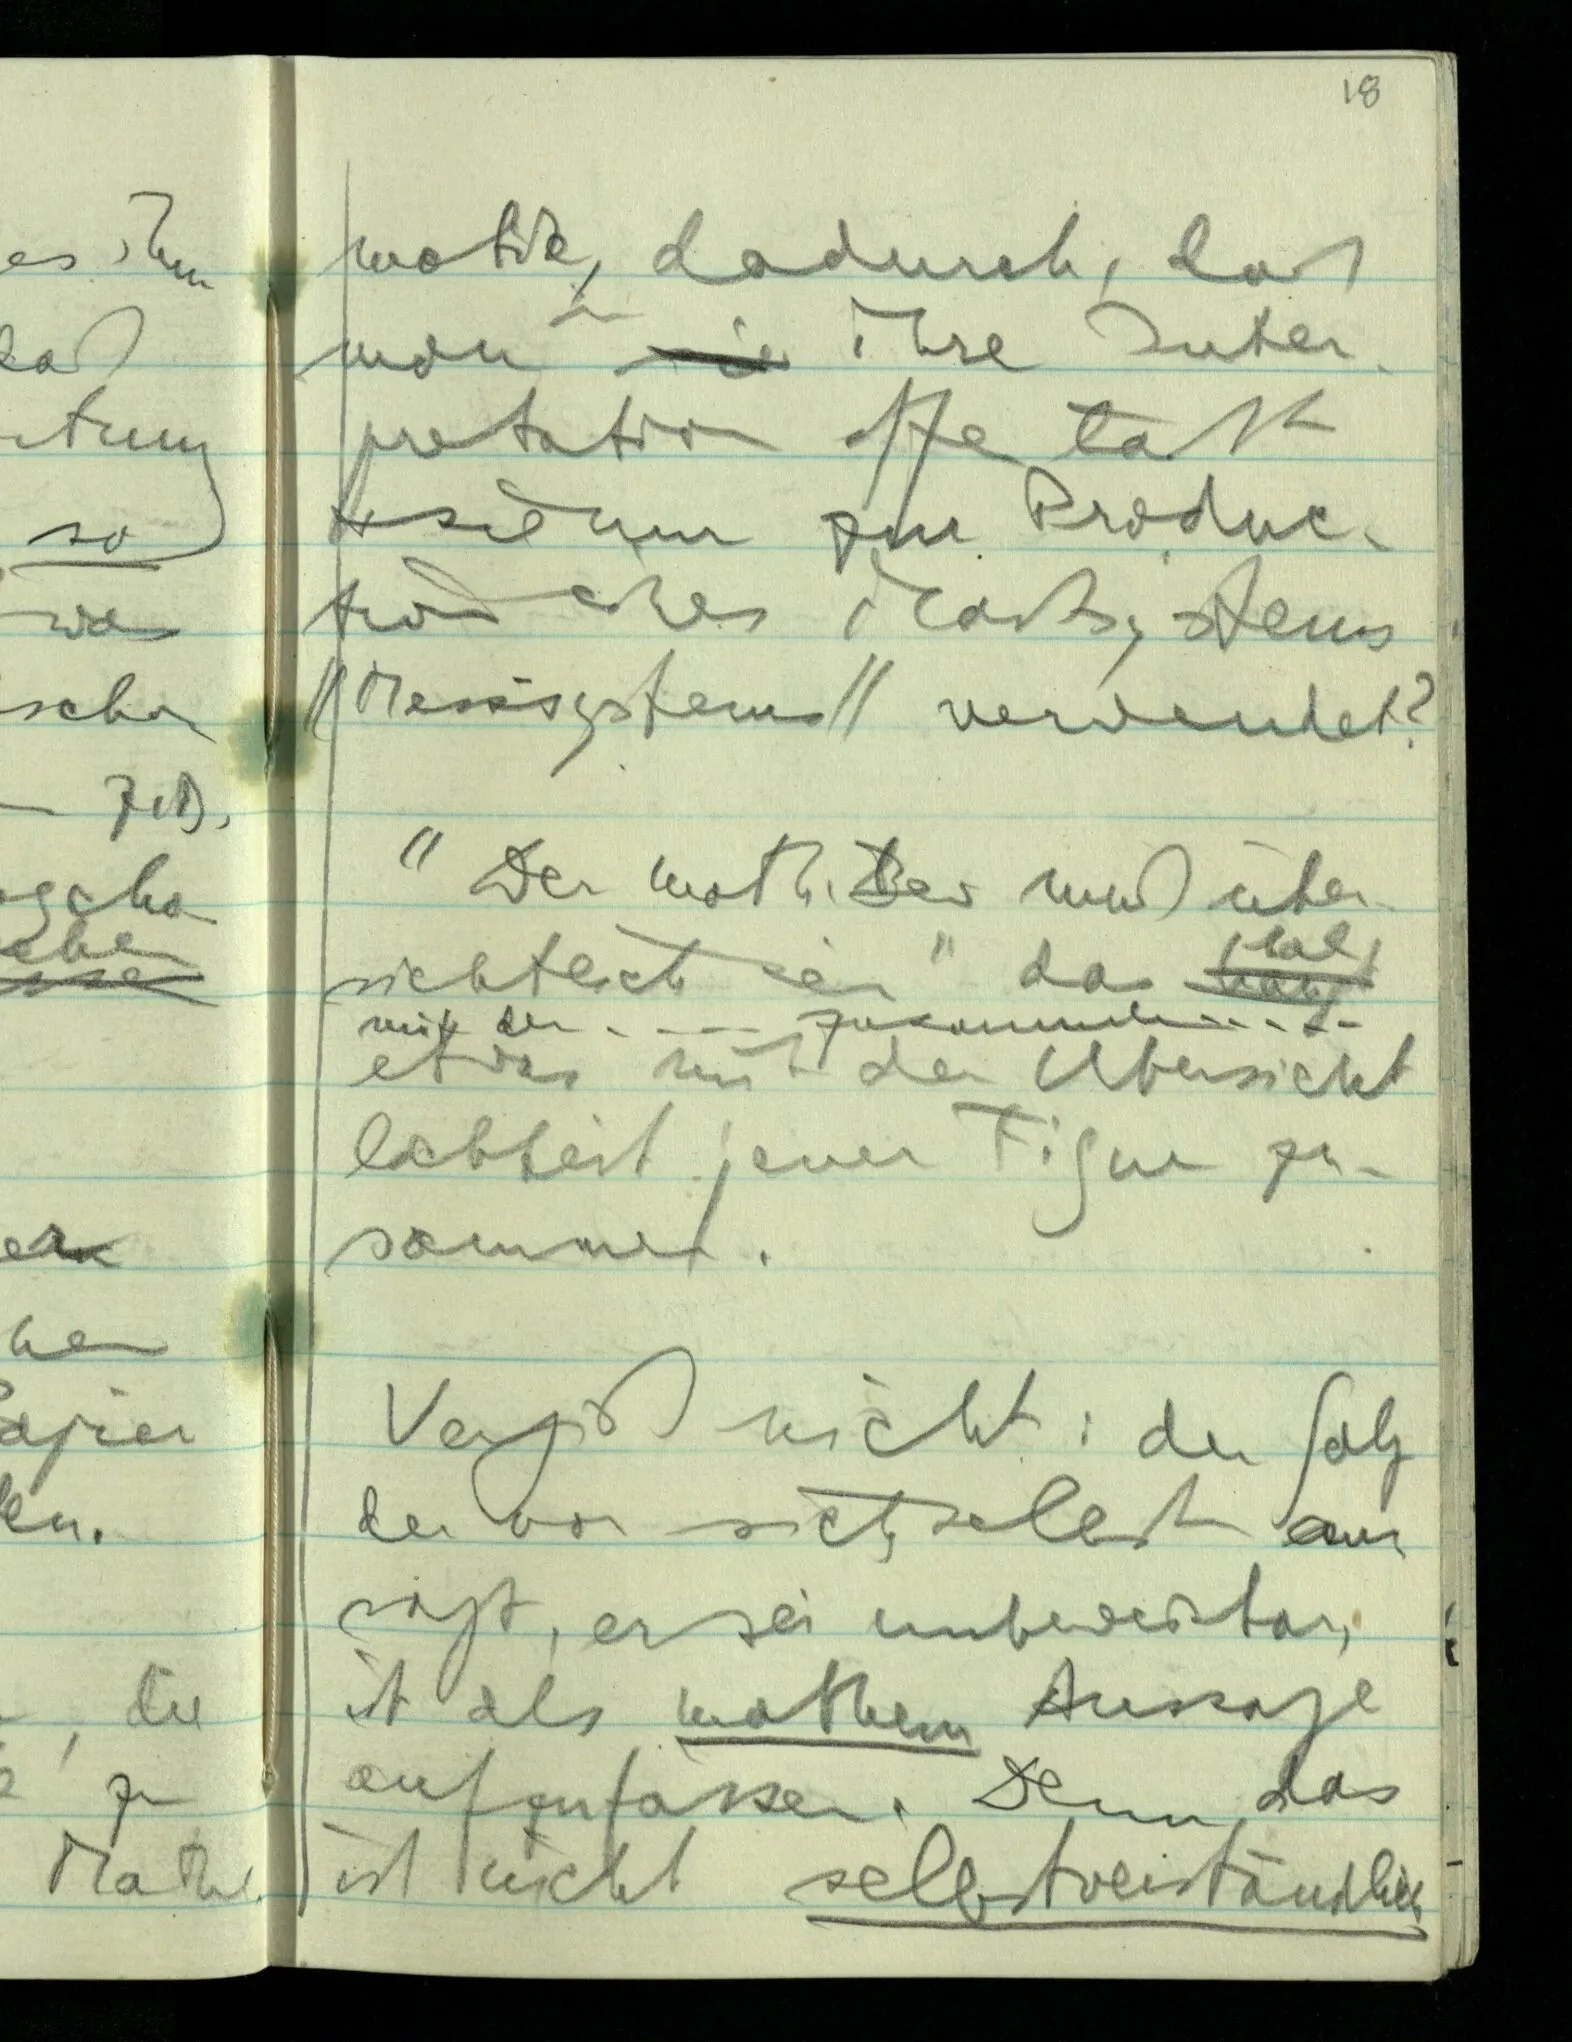 18
es ihm
daß
utung
so
was
ischen
z.B.
Papier
len.
, die
zu
Mathe
matik, dadurch, daß
man ihre Inter-
pretation offen läßt
& sie nun zur Produc-
tion eines Maßsystems
//Messsystems// verwendet?
"Der math. Bew muß über-
sichtlich sein" das hat
mit der . - - - zusammen . . . -
etwas mit der Übersicht
lichkeit jener Figur zu-
sammen.
Vergiß nicht: der Satz
der von sich selbst aus
sagt, er sei unbeweisbar,
ist als mathem Aussage
aufzufassen. Denn das
ist nicht selbstverständlich